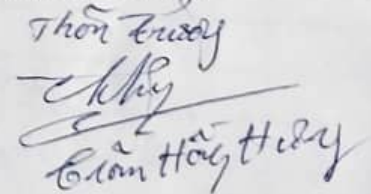 Thôn Trưởng
Trần Hồng Hưng